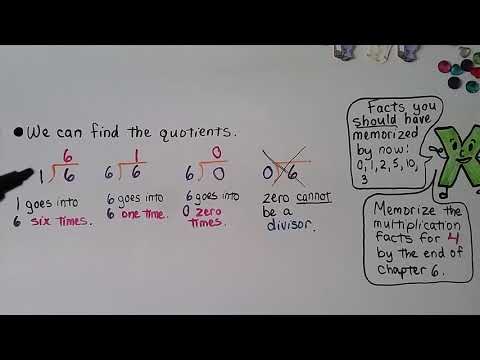 We can find the quotients.
6
1 6
1 goes into
6 six times.
1
6 6
6 goes into
6 one time.
0
6 0
6 goes into
0 zero
times.
0 6
zero cannot
be a
divisor.
Facts you
should have
memorized
by now:
0, 1, 2, 5, 10,
3
X
Memorize the
multiplication
facts for 4
by the end of
chapter 6.